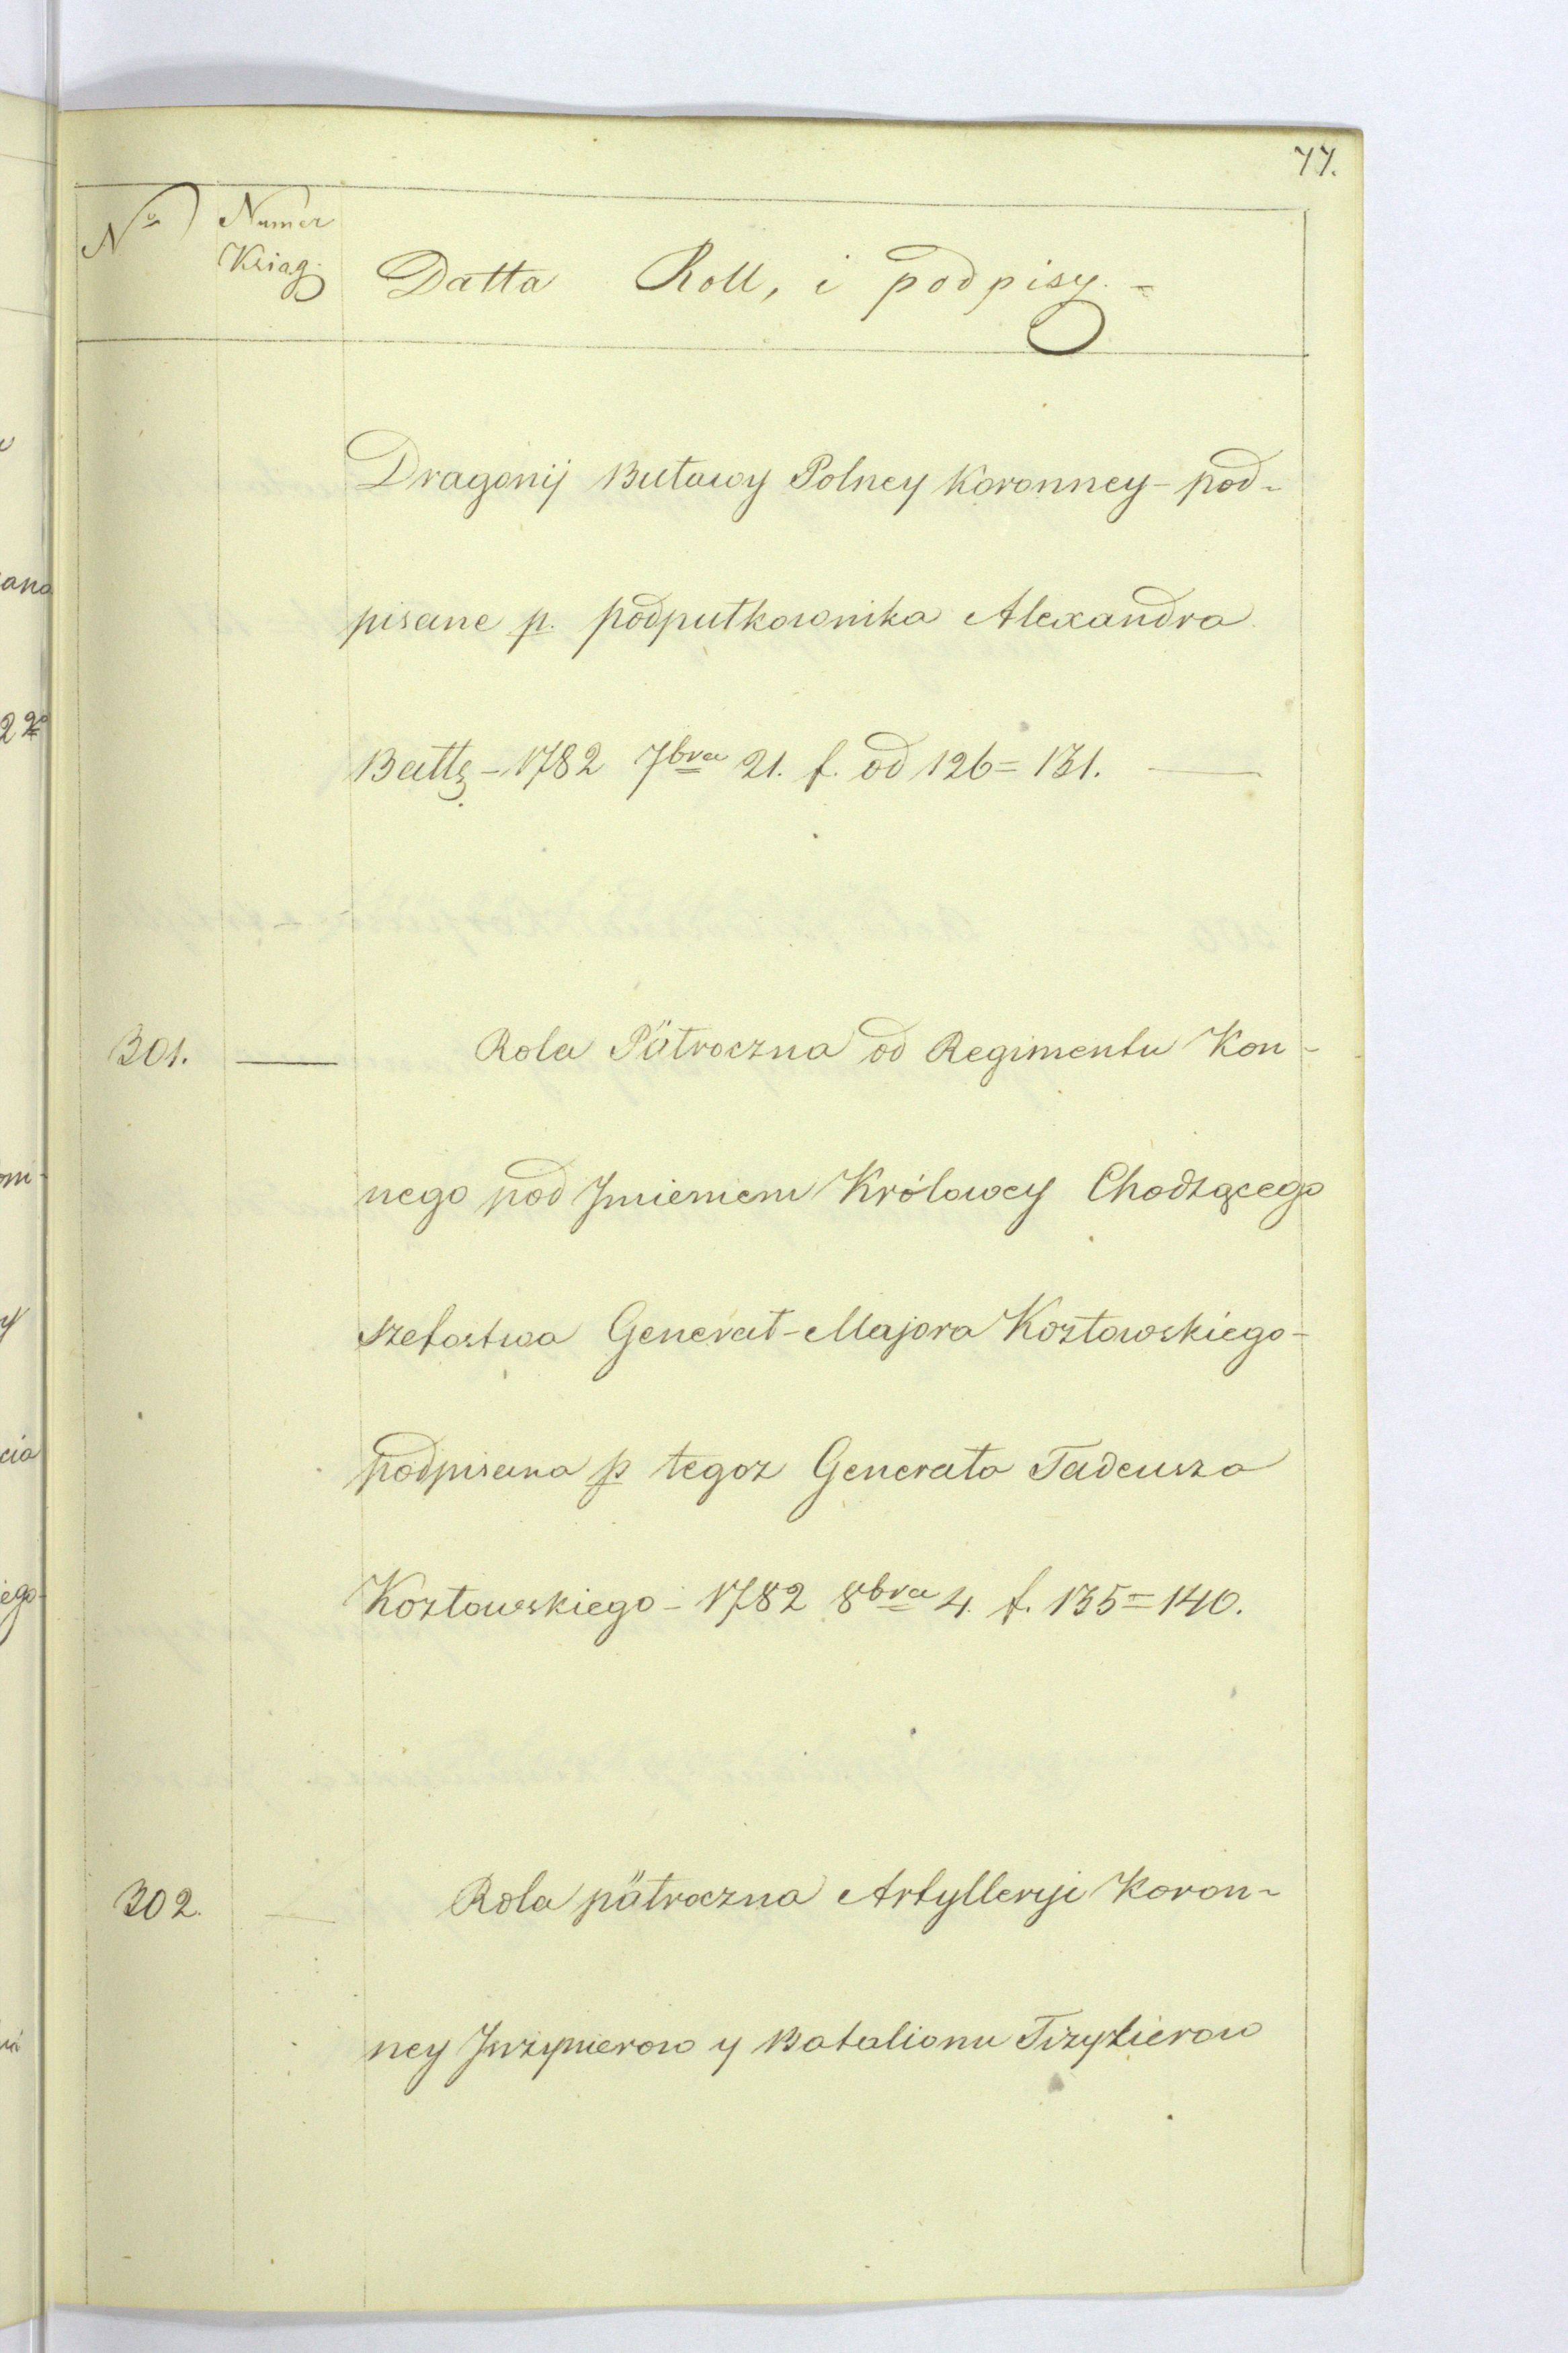 77.
No Numer Xsiąg.
Datta Roll, i podpisy. =
Dragonij Buławy Polney Koronney - pod-
pisane p. podpułkownika Alexandra
1782 7bra 21. f. od 126 = 131.
301. Rola Półroczna od Regimentu Kon-
nego pod Jmieniem Królowey Chodzącego
szefostwa Generał-Majora Kozłowskiego -
podpisana p tegoz Generała Tadeusza
Kozłowskiego - 1782 8bra 4. f. 135 = 140.
302. Rola półroczna Artylleryi Koron-
ney Jnzynierow y Batalionu Fizylierow